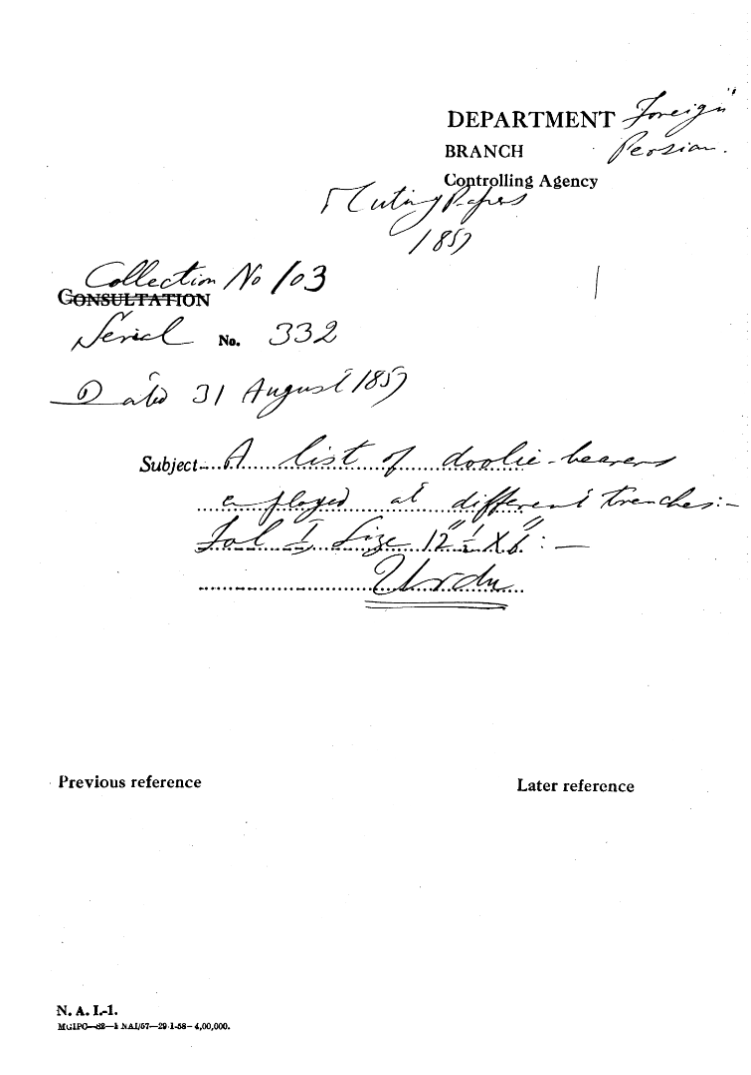 DEPARTMENT Foreign
BRANCH Persian.
Controlling Agency
Mutiny Papers
1857
Collection No 103
CONSULTATION
Serial No. 332
Dated 31 August 1857
Subject A list of doolie-bearers
employed at different trenches:-
Fol I Size 12"½ X 6":-
Urdu
Previous reference Later reference
N. A. I.-1.
MGIPC—82—1 NAI/57—29-1-58—4,00,000.